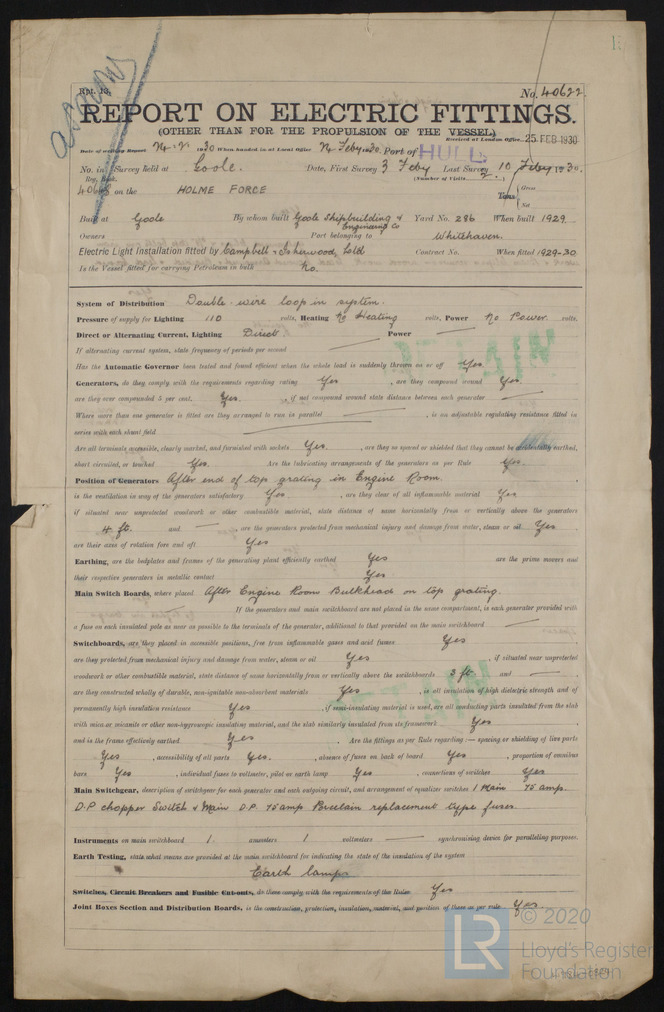 Rpt. 13.
No. 40622
REPORT ON ELECTRIC FITTINGS.
(OTHER THAN FOR THE PROPULSION OF THE VESSEL)
Received at London Office 25 FEB 1930
Date of writing Report 1930 When handed in at Local Office 24 Feby 1930 Port of HULL
No. in Survey held at Goole. Date, First Survey 3 Feby Last Survey 10 Feby 1930.
Reg. Book. (Number of Visits 2.)
on the HOLME FORCE Tons Gross Net
Built at Goole By whom built Goole Shipbuilding & Engineering Co Yard No. 286 When built 1929
Owners Port belonging to Whitehaven.
Electric Light Installation fitted by Campbell & Isherwood Ltd Contract No. When fitted 1929-30
Is the Vessel fitted for carrying Petroleum in bulk No.
System of Distribution Double-wire loop in system.
Pressure of supply for Lighting 110 volts, Heating No Heating volts, Power No Power volts.
Direct or Alternating Current, Lighting Direct Power
If alternating current system, state frequency of periods per second
Has the Automatic Governor been tested and found efficient when the whole load is suddenly thrown on or off Yes.
Generators, do they comply with the requirements regarding rating Yes , are they compound wound Yes.
are they over compounded 5 per cent. Yes. , if not compound wound state distance between each generator
Where more than one generator is fitted are they arranged to run in parallel , is an adjustable regulating resistance fitted in
series with each shunt field
Are all terminals accessible, clearly marked, and furnished with sockets Yes. , are they so spaced or shielded that they cannot be accidentally earthed,
short circuited, or touched Yes. Are the lubricating arrangements of the generators as per Rule Yes.
Position of Generators After end of top grating in Engine Room.
is the ventilation in way of the generators satisfactory Yes , are they clear of all inflammable material Yes
if situated near unprotected woodwork or other combustible material, state distance of same horizontally from or vertically above the generators
4 ft. and — are the generators protected from mechanical injury and damage from water, steam or oil Yes
are their axes of rotation fore and aft Yes
Earthing, are the bedplates and frames of the generating plant efficiently earthed Yes are the prime movers and
their respective generators in metallic contact Yes.
Main Switch Boards, where placed After Engine Room Bulkhead on top grating.
If the generators and main switchboard are not placed in the same compartment, is each generator provided with
a fuse on each insulated pole as near as possible to the terminals of the generator, additional to that provided on the main switchboard
Switchboards, are they placed in accessible positions, free from inflammable gases and acid fumes Yes
are they protected from mechanical injury and damage from water, steam or oil Yes , if situated near unprotected
woodwork or other combustible material, state distance of same horizontally from or vertically above the switchboards 3 ft. and —
are they constructed wholly of durable, non-ignitable non-absorbent materials Yes , is all insulation of high dielectric strength and of
permanently high insulation resistance Yes , if semi-insulating material is used, are all conducting parts insulated from the slab
with mica or micanite or other non-hygroscopic insulating material, and the slab similarly insulated from its framework Yes
and is the frame effectively earthed Yes . Are the fittings as per Rule regarding :— spacing or shielding of live parts
Yes , accessibility of all parts Yes. , absence of fuses on back of board Yes , proportion of omnibus
bars Yes , individual fuses to voltmeter, pilot or earth lamp Yes , connections of switches Yes
Main Switchgear, description of switchgear for each generator and each outgoing circuit, and arrangement of equalizer switches 1 Main 75 amp.
D.P. chopper Switch & Main D.P. 75 amp Porcelain replacement type fuses
Instruments on main switchboard 1. ammeters 1 voltmeters — synchronising device for paralleling purposes.
Earth Testing, state what means are provided at the main switchboard for indicating the state of the insulation of the system
Earth lamps
Switches, Circuit Breakers and Fusible Cut-outs, do these comply with the requirements of the Rules Yes
Joint Boxes Section and Distribution Boards, is the construction, protection, insulation, material, and position of these as per rule Yes.
© 2020
LR
Lloyd's Register
Foundation